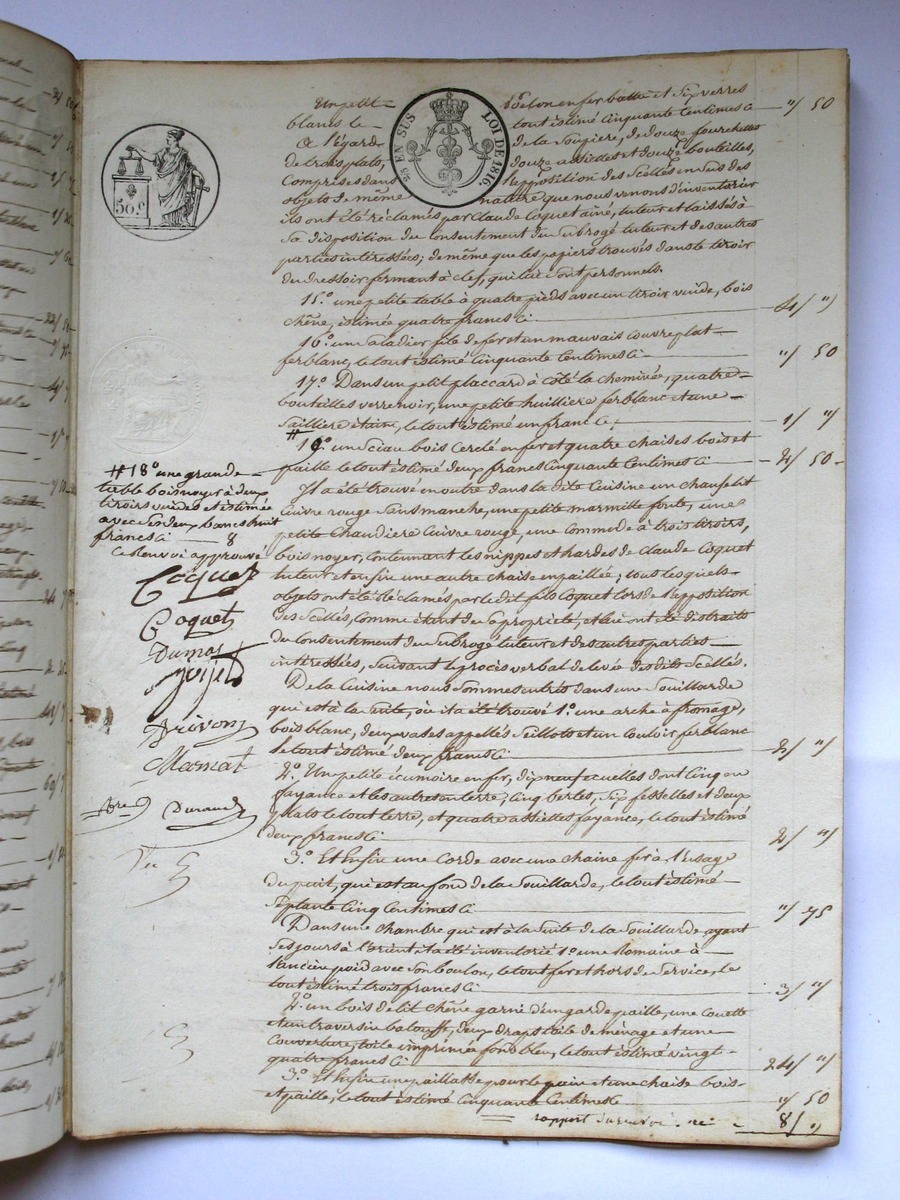 EN SUS
LOI DE 1816
50.c
Un petit poelon en fer battu et six verres
blancs le tout estimé cinquante centimes ci "/ 50
A l'égard de la Soupière, de douze fourchettes
de trois plats, douze assiettes et douze bouteilles,
Comprises dans l'apposition des Scellés en sus des
objets de même nature que nous venons d'inventorier
ils ont été réclamés par Claude Coquet aîné, tuteur et laissés à
Sa disposition du Consentement du Subrogé tuteur et des autres
parties intéressées; de même que les papiers trouvés dans le tiroir
du dressoir fermant à clef, qui lui sont personnels.
15.° une petite table à quatre pieds avec un tiroir vuide, bois
chêne, estimée quatre francs ci 4/ "
16.° un Saladier file de fer et un mauvais couvre plat
fer blanc, le tout estimé Cinquante Centimes ci "/ 50
17.° Dans un petit placcard à côté la cheminée, quatre
bouteilles verre noir, une petite huilliere fer blanc et une
Saillière étain, le tout estimé un franc ci 1/ "
# 19.° un Sciau bois Cerclé en fer et quatre chaises bois et
paille le tout estimé deux francs Cinquante Centimes ci 2/ 50
Il a été trouvé en outre dans la dite Cuisine un chaufelit
Cuivre rouge Sans manche, une petite marmitte fonte, une
petite Chaudiere Cuivre rouge, une commode à trois tiroirs,
bois noyer, Contennant les nippes et hardes de Claude Coquet
tuteur et enfin une autre chaise enpaillée; tous lesquels
objets ont été réclamés par le dit fils Coquet lors de l'apposition
des Scellés, Comme étant de sa propriété, et lui ont été distraits
du Consentement du Subrogé tuteur et des autres parties
intéressées, Suivant le procès verbal de levée des dits Scellés.
De la Cuisine nous Sommes entrés dans une Souillarde
qui est à la Suite, où il a été trouvé 1.° une arche à fromage,
bois blanc, deux vases appellés Seillots et un Couloir fer blanc
le tout estimé deux francs ci 2/ "
2.° Un petite écumoire en fer, dix neuf ecuelles dont Cinq en
fayance et les autres en terre, Cinq bertes, Six fesselles et deux
plats le tout terre, et quatre assiettes fayance, le tout estimé
deux francs Ci 2/ "
3.° Et Enfin une Corde avec une chaine fer à l'usage
du puit, qui est au fond de la Souillarde, le tout estimé
Septante Cinq Centimes Ci "/ 75
Dans une Chambre qui est à la Suite de la Souillarde ayant
Ses jours à l'orient il a été inventorié 1.° une Romaine à
l'ancien poid avec Son boulon, le tout fer et hors de Service, le
tout estimé trois francs Ci 3/ "
2.° un bois de lit chêne garni d'un garde paille, une Couette
et un traversin balouff, deux draps toile de ménage et une
Couverture, toile imprimée fond bleu, le tout estimé vingt-
quatre francs Ci 24/ "
3.° Et Enfin une paillasse pour le pain et une chaise bois
et paille, le tout estimé Cinquante Centimes "/ 50
rapport du renvoi ci 8/ "
# 18.° une grande
table bois noyer à deux
tiroirs vuides et estimée
avec Ses deux bancs huit
francs Ci 8
Ce Renvoi approuvé
Coquet
Coquet
Dumas
Drivon
Mamat
Durand